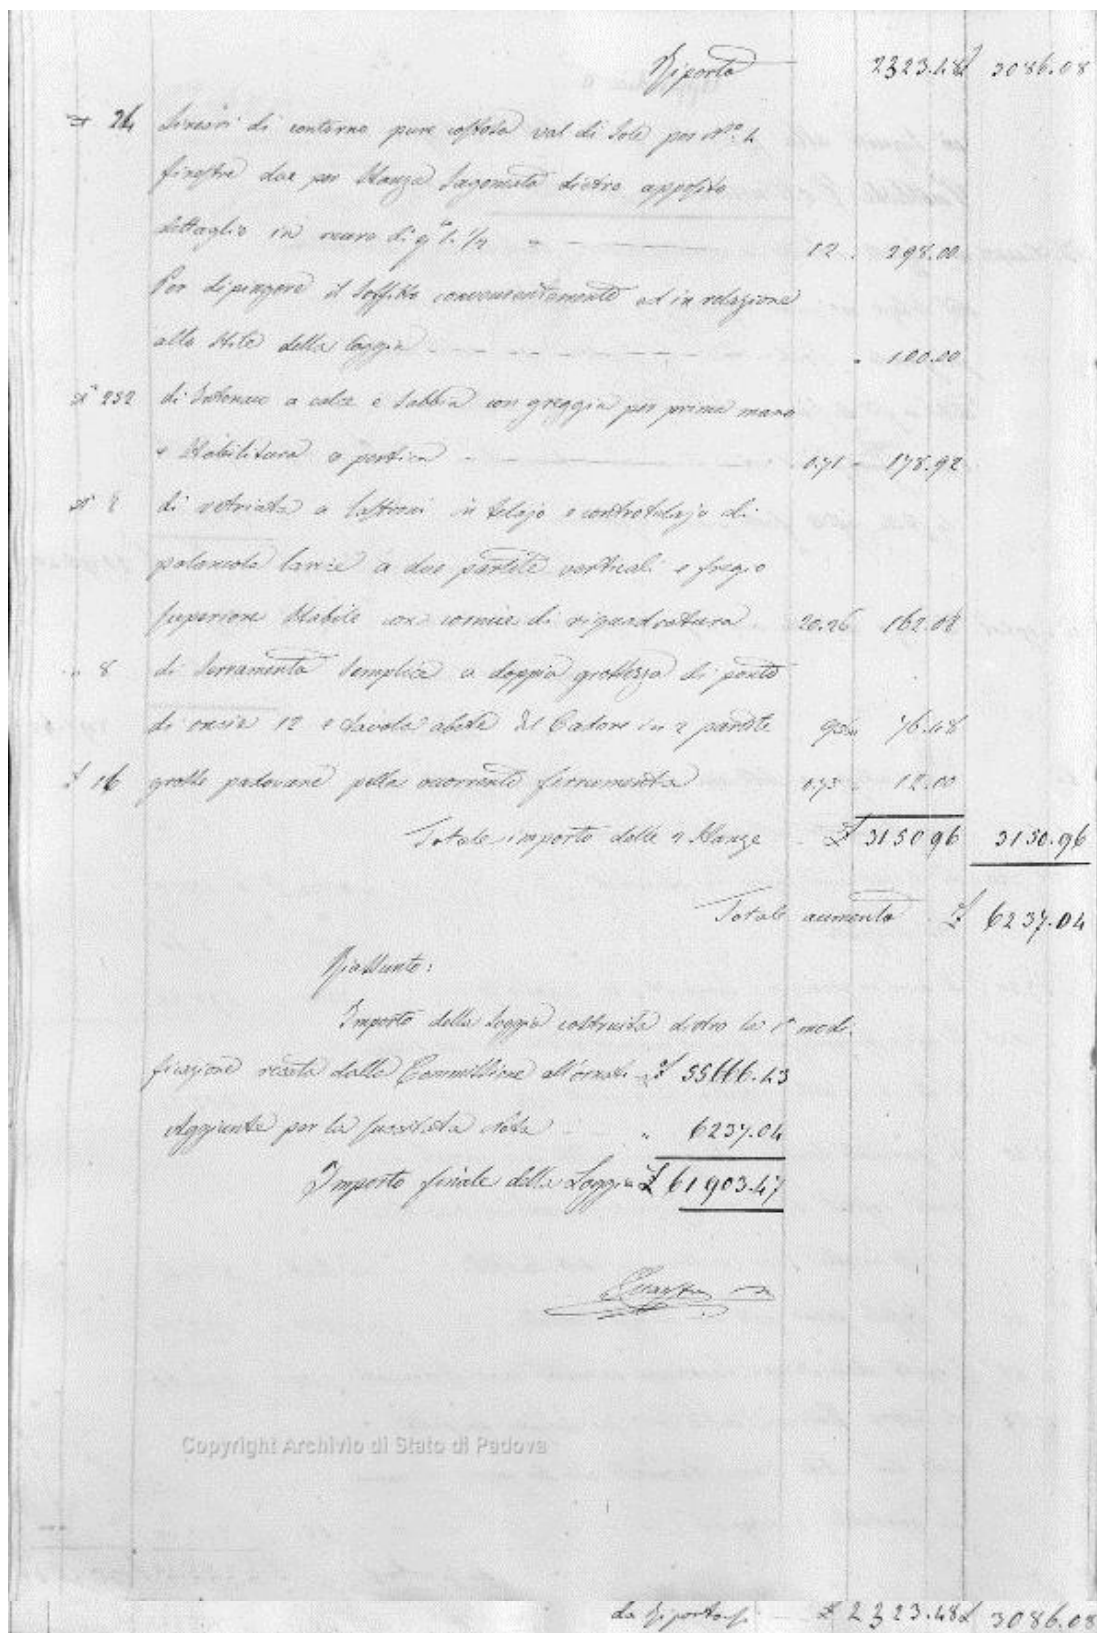 Riporto 2323.48 £ 3086.08
24 lineari di contorno pure costosa val di Sole per N.o 4
finestre due per Stanza sagomate dietro apposito
dettaglio in ragione di 12 . 298.00
Per dipingere il soffitto convenientemente ed in relazione
allo stile della loggia " 100.00
252 di Intonaco a calce e sabbia con greggia per prima mano
e Stabilitura a 0.71 " 178.92
8 di vetriata a lastroni in telajo e controtelajo di
larice a due partite verticali e fregio
superiore stabile con cornice di riquadratura 20.26 162.08
" 8 di serramenta semplice a doppia grossezza di ponte
di oncie 12 e tavola abete del Cadore in 2 partite 76.48
£ 16 grosse padovane pella occorrente ferramenta 0.75 " 12.00
Totale importo delle 2 Stanze £ 3150 96 3150.96
Totale aumento £ 6237.04
Riassunto:
Importo della Loggia costruita dietro la 1a modi-
ficazione recata dalla Commissione all'ornato £ 55666.43
Aggiunta per la suddetta " 6237.04
Importo finale della Loggia £ 61903.47
Copyright Archivio di Stato di Padova
da Riportarsi £ 2323.48 £ 3086.08